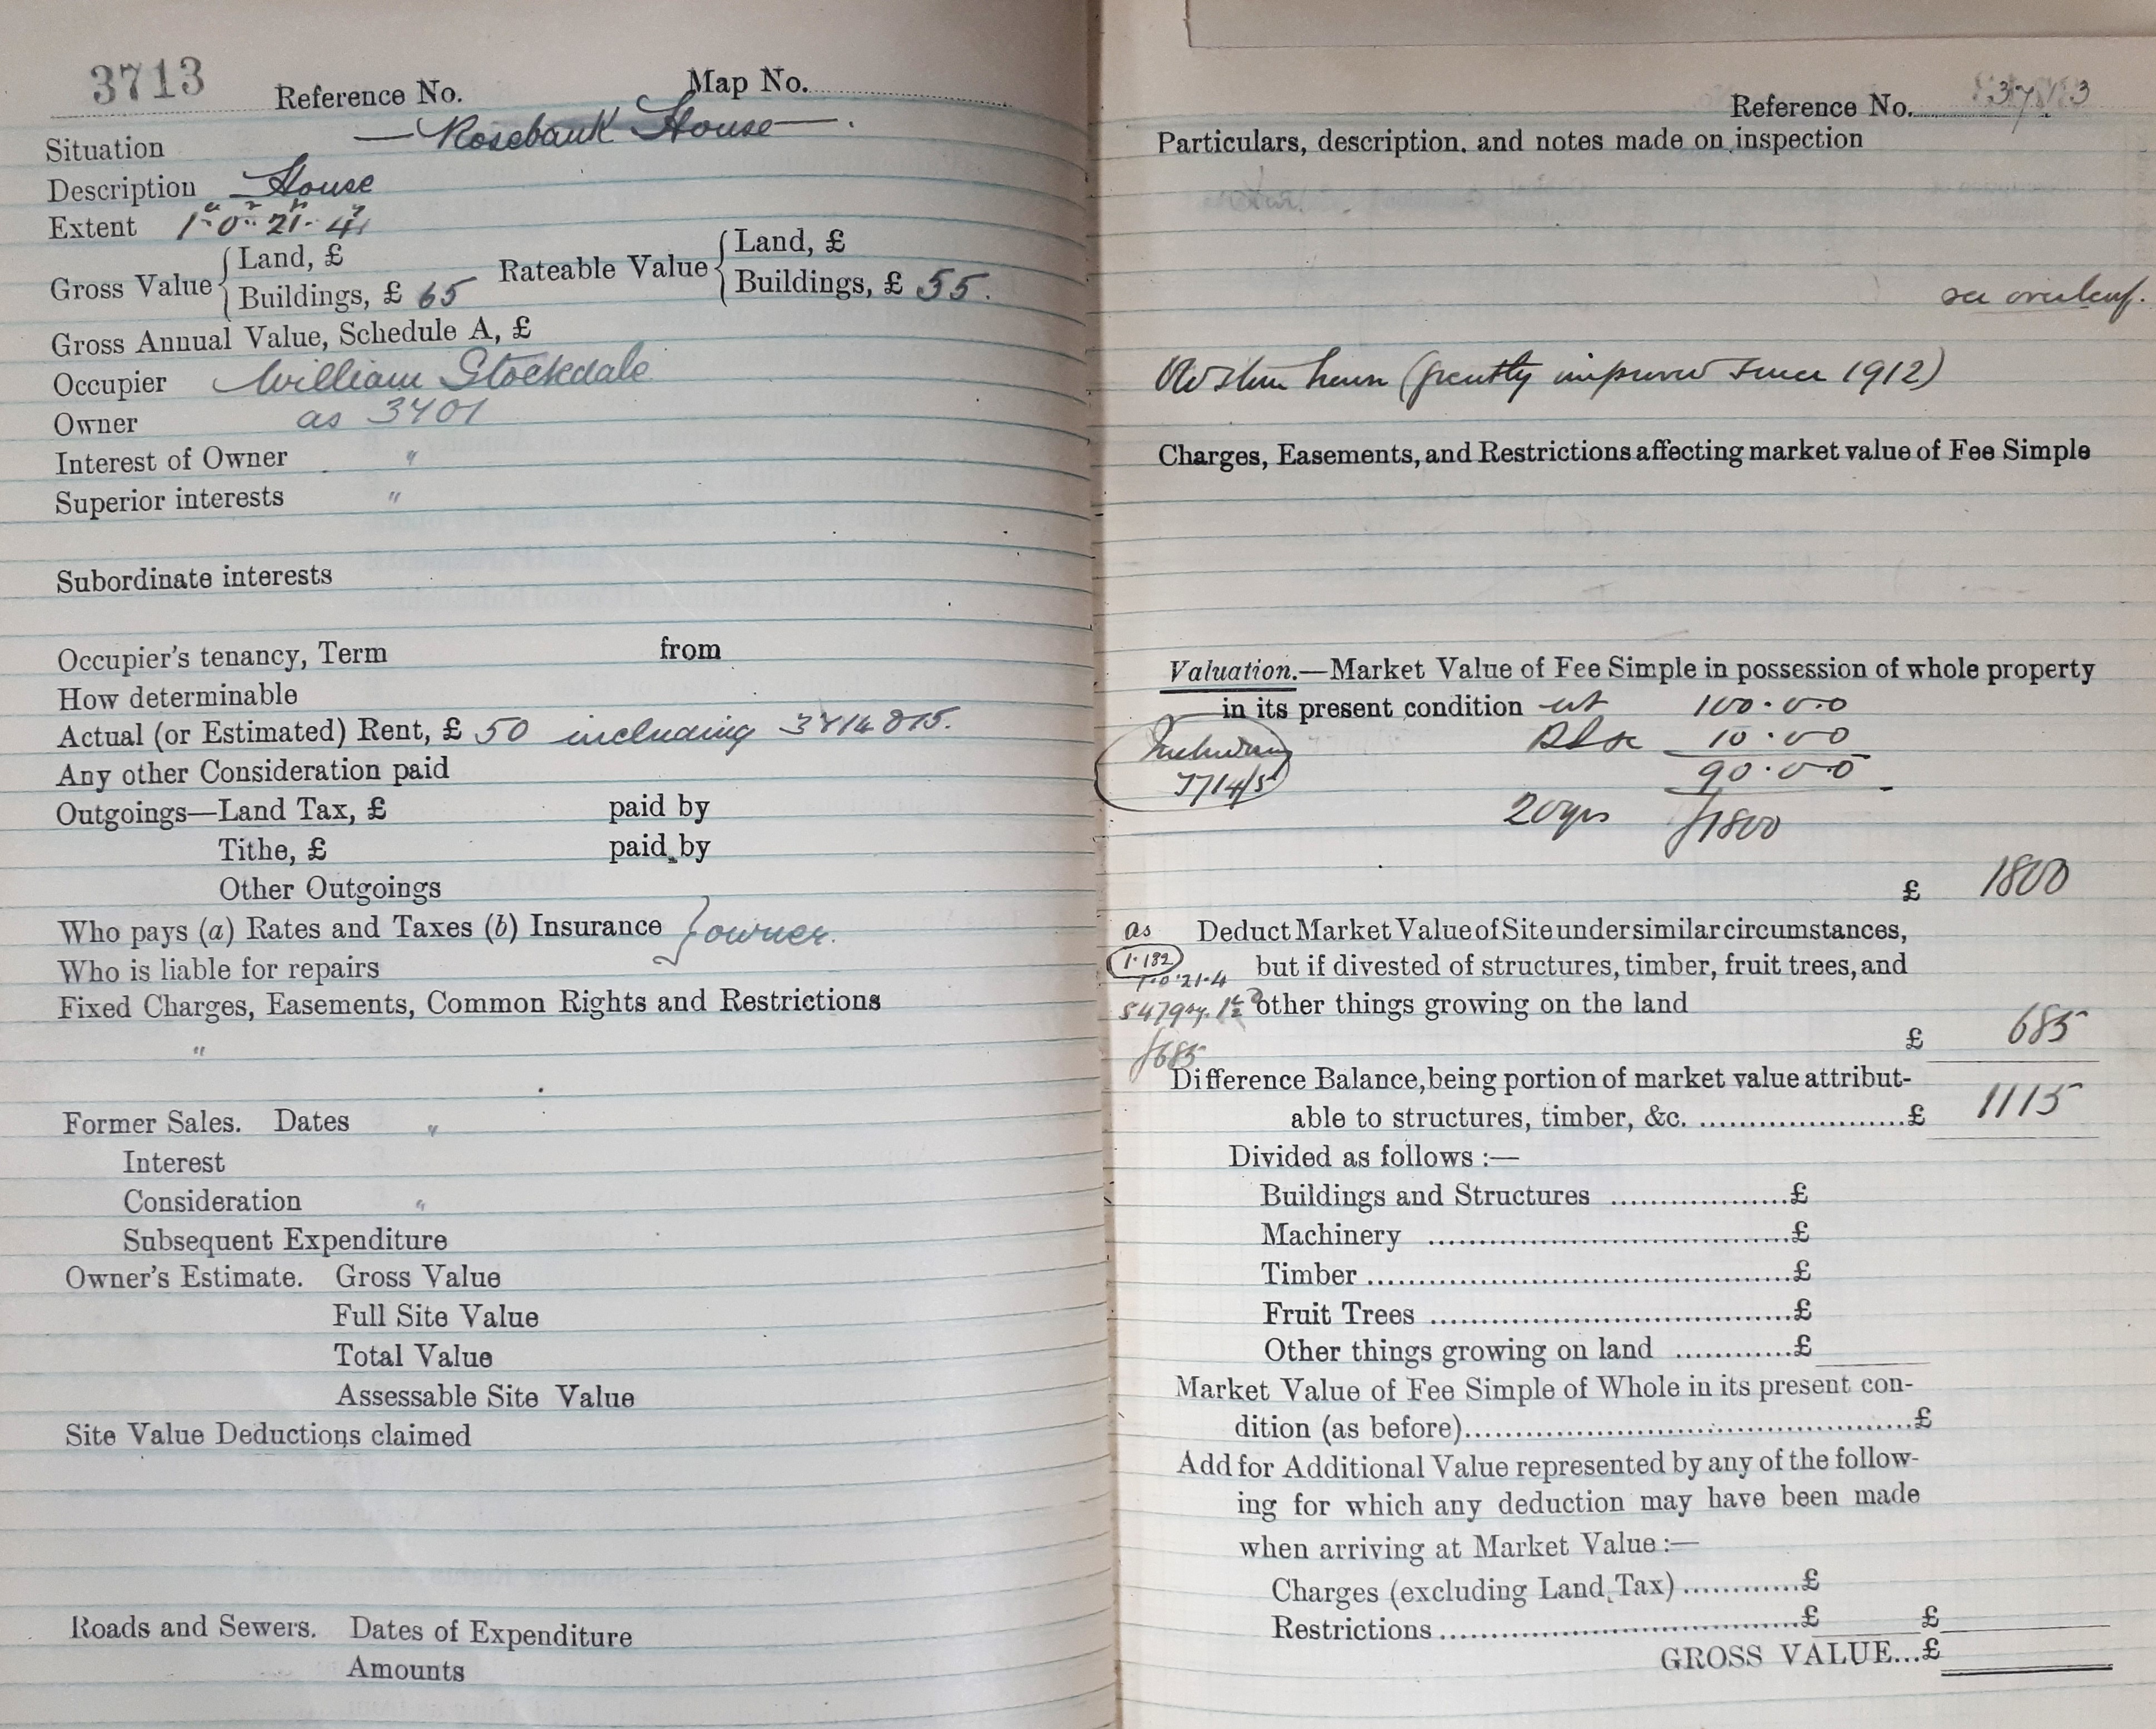 3713 Reference No. Map No.
Situation — Rosebank House —.
Description House
Extent 1a.. 0r.. 21p. 4y
Gross Value { Land, £ Rateable Value { Land, £
Buildings, £ 65 Buildings, £ 55.
Gross Annual Value, Schedule A, £
Occupier William Stockdale
Owner as 3701
Interest of Owner "
Superior interests "
Subordinate interests
Occupier's tenancy, Term from
How determinable
Actual (or Estimated) Rent, £ 50 including 3714 & 15.
Any other Consideration paid
Outgoings—Land Tax, £ paid by
Tithe, £ paid by
Other Outgoings
Who pays (a) Rates and Taxes (b) Insurance } owner.
Who is liable for repairs
Fixed Charges, Easements, Common Rights and Restrictions
"
Former Sales. Dates "
Interest
Consideration "
Subsequent Expenditure
Owner's Estimate. Gross Value
Full Site Value
Total Value
Assessable Site Value
Site Value Deductions claimed
Roads and Sewers. Dates of Expenditure
Amounts
Reference No. 3713
Particulars, description, and notes made on inspection
see overleaf.
Old Stone house (greatly improved since 1912)
Charges, Easements, and Restrictions affecting market value of Fee Simple
Valuation.—Market Value of Fee Simple in possession of whole property
in its present condition 100.0.0
Including 10.0.0
3714/5 90.0.0
20yrs £1800
£ 1800
as Deduct Market Value of Site under similar circumstances,
1.132 but if divested of structures, timber, fruit trees, and
1.0.21.4
5479 sy. other things growing on the land
£ 685
£685
Difference Balance, being portion of market value attribut-
able to structures, timber, &c. £ 1115
Divided as follows :—
Buildings and Structures £
Machinery £
Timber £
Fruit Trees £
Other things growing on land £
Market Value of Fee Simple of Whole in its present con-
dition (as before) £
Add for Additional Value represented by any of the follow-
ing for which any deduction may have been made
when arriving at Market Value :—
Charges (excluding Land Tax) £
Restrictions £ £
GROSS VALUE...£